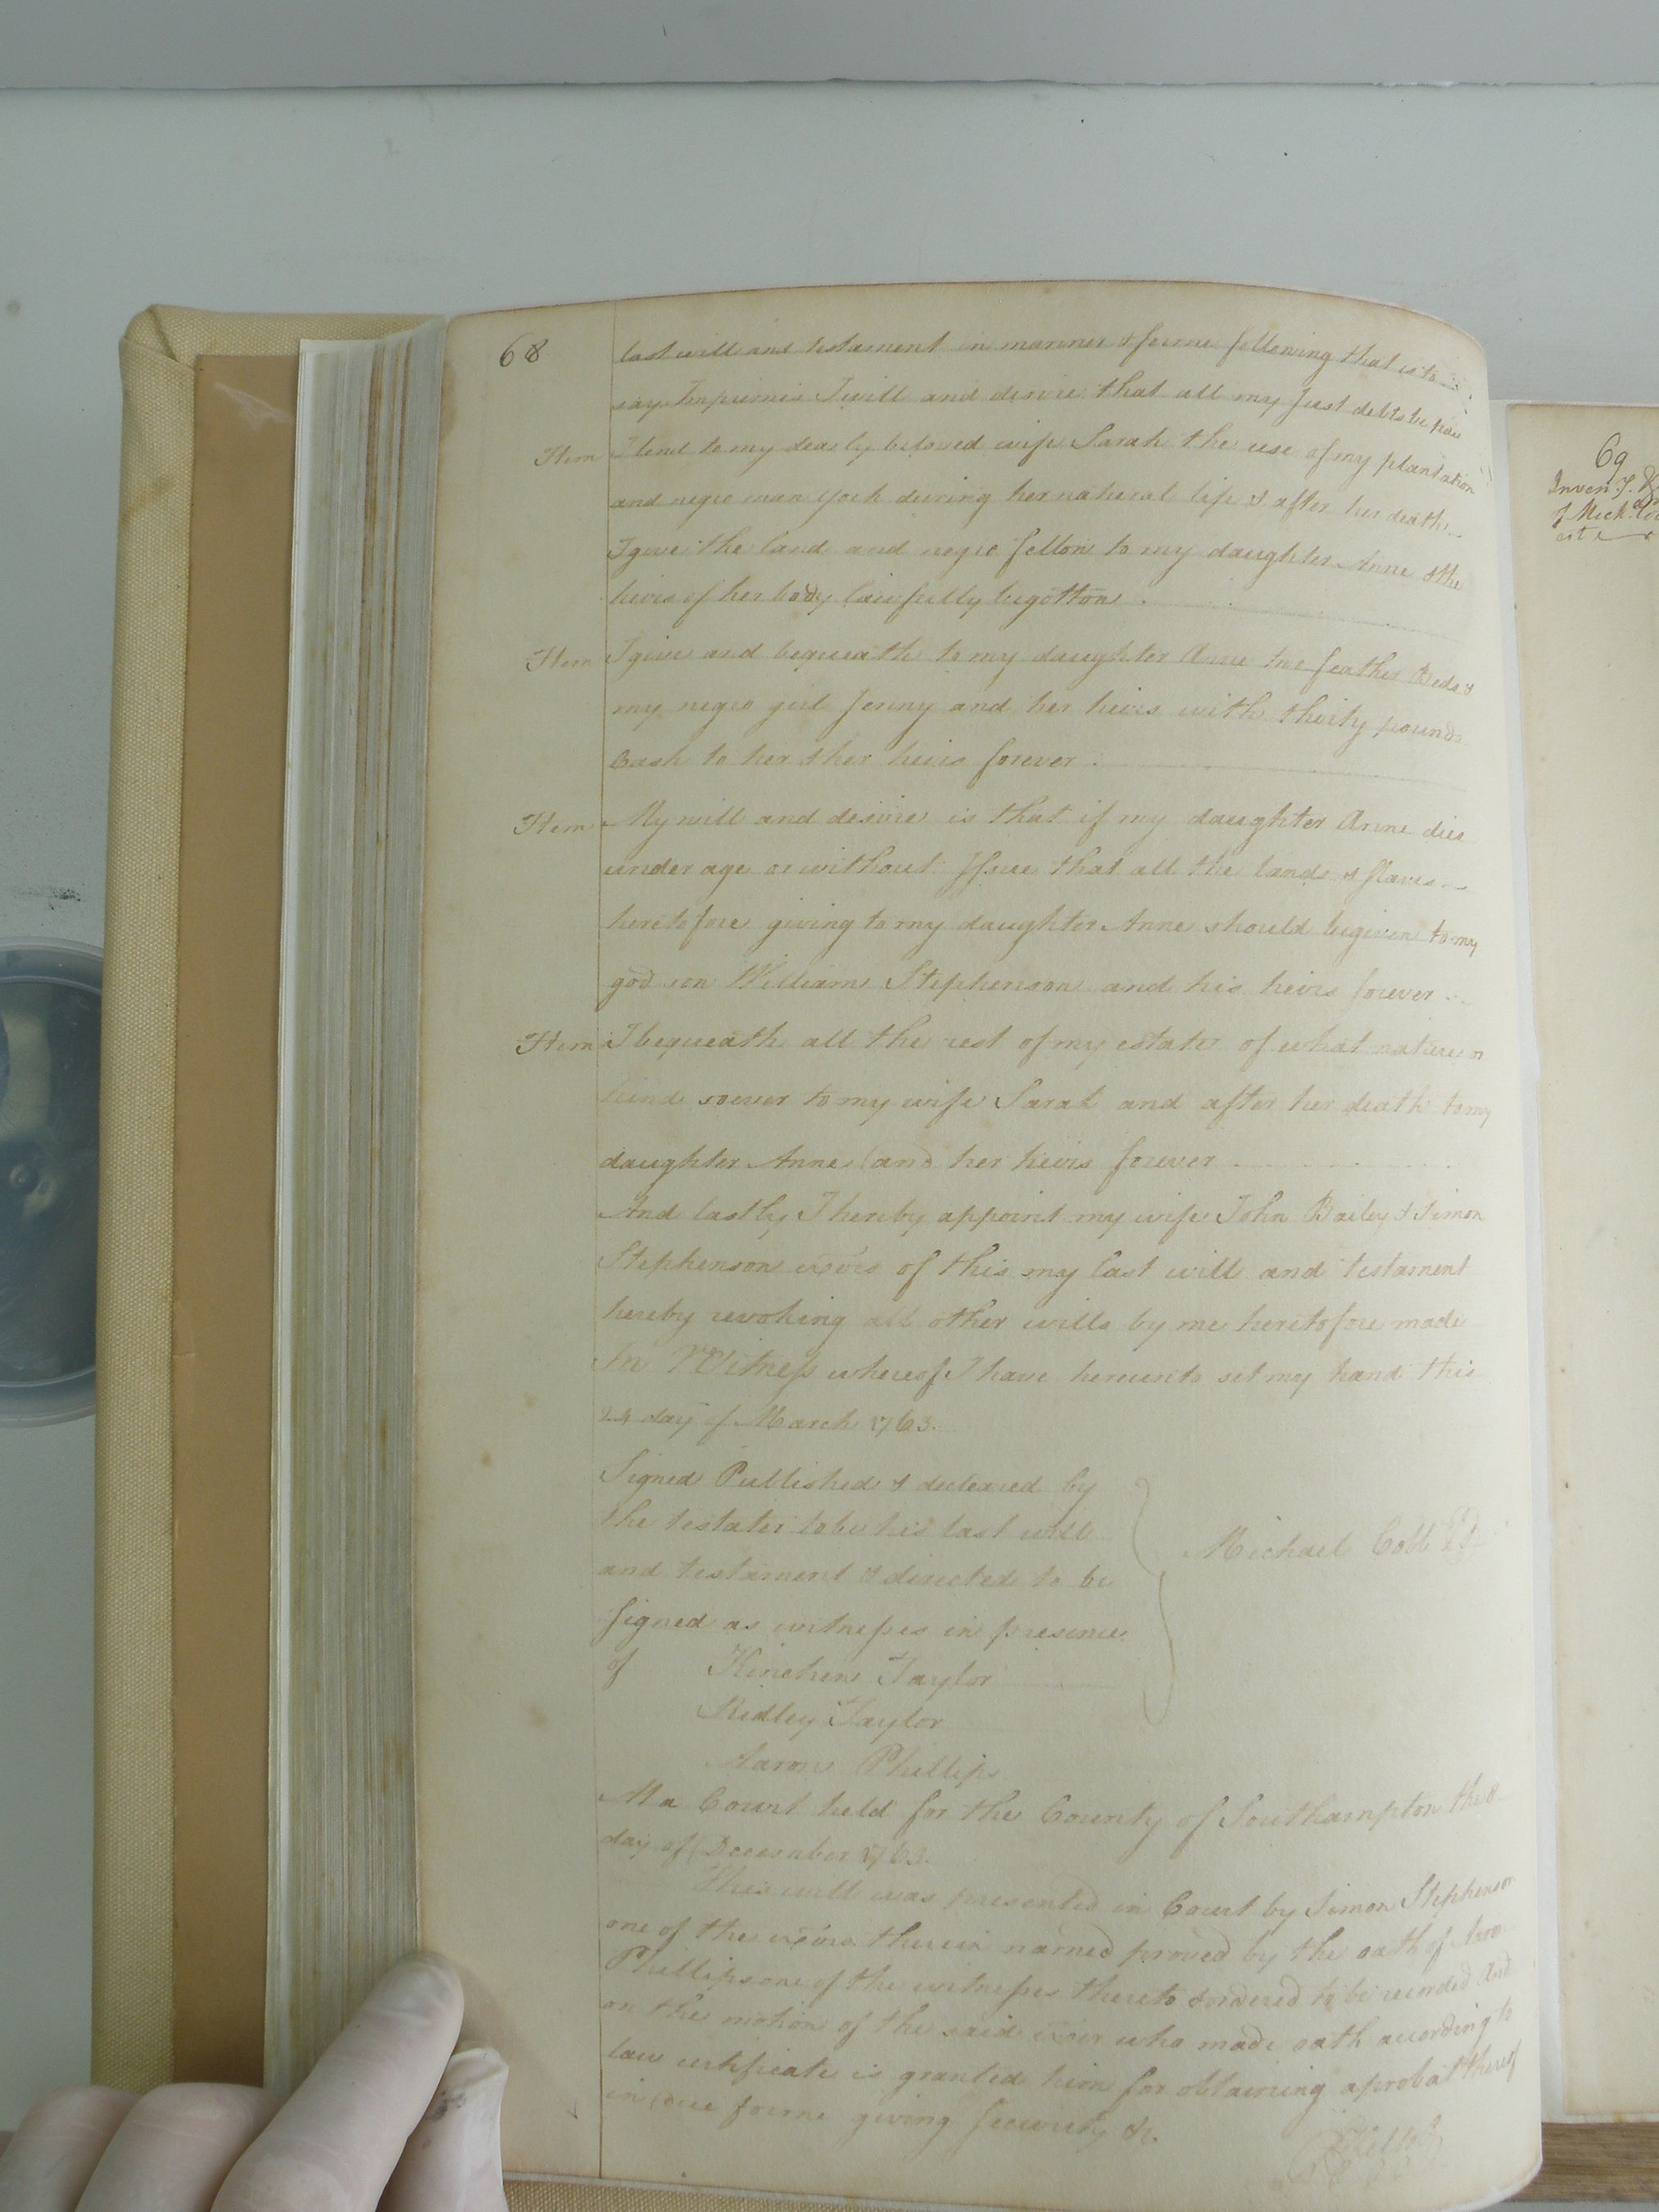 68
last will and testament in manner & forme following that is to
say Imprimis I will and desire that all my just debts be paid
Item I lend to my dearly beloved wife Sarah the use of my plantation
and negro man York during her natural life & after her death
I give the land and negro fellon to my daughter Anne & the
heirs of her body lawfully begotton
Item I give and bequeath to my daughter Anne two feather Beds &
my negro girl Jenny and her heirs with thirty pounds
Cash to her & her heirs forever
Item My will and desire is that if my daughter Anne dies
under age or without Issue that all the lands & slaves
heretofore giving to my daughter Anne should be given to my
god son William Stephenson and his heirs forever
Item I bequeath all the rest of my estate of what nature or
kind soever to my wife Sarah and after her death to my
daughter Anne and her heirs forever
And lastly I hereby appoint my wife John Bailey & Simon
Stephenson exors of this my last will and testament
hereby revoking all other wills by me heretofore made
In Witness whereof I have hereunto set my hand this
24 day of March 1763.
Signed Published & decleared by
the testator to be his last will
and testament & directed to be
signed as witnesses in presence
of Kinchen Taylor
Ridley Taylor
Aaron Phillips
Michael Cobb
At a Court held for the County of Southampton the 8
day of December 1763.
This will was presented in Court by Simon Stephenson
one of the exors therein named proved by the oath of
Phillips one of the witnesses thereto & ordered to be recorded And
on the motion of the said exor who made oath according to
law certificate is granted him for obtaining a probat thereof
in due forme giving security &c.
69
Inven.y.
of Mich.